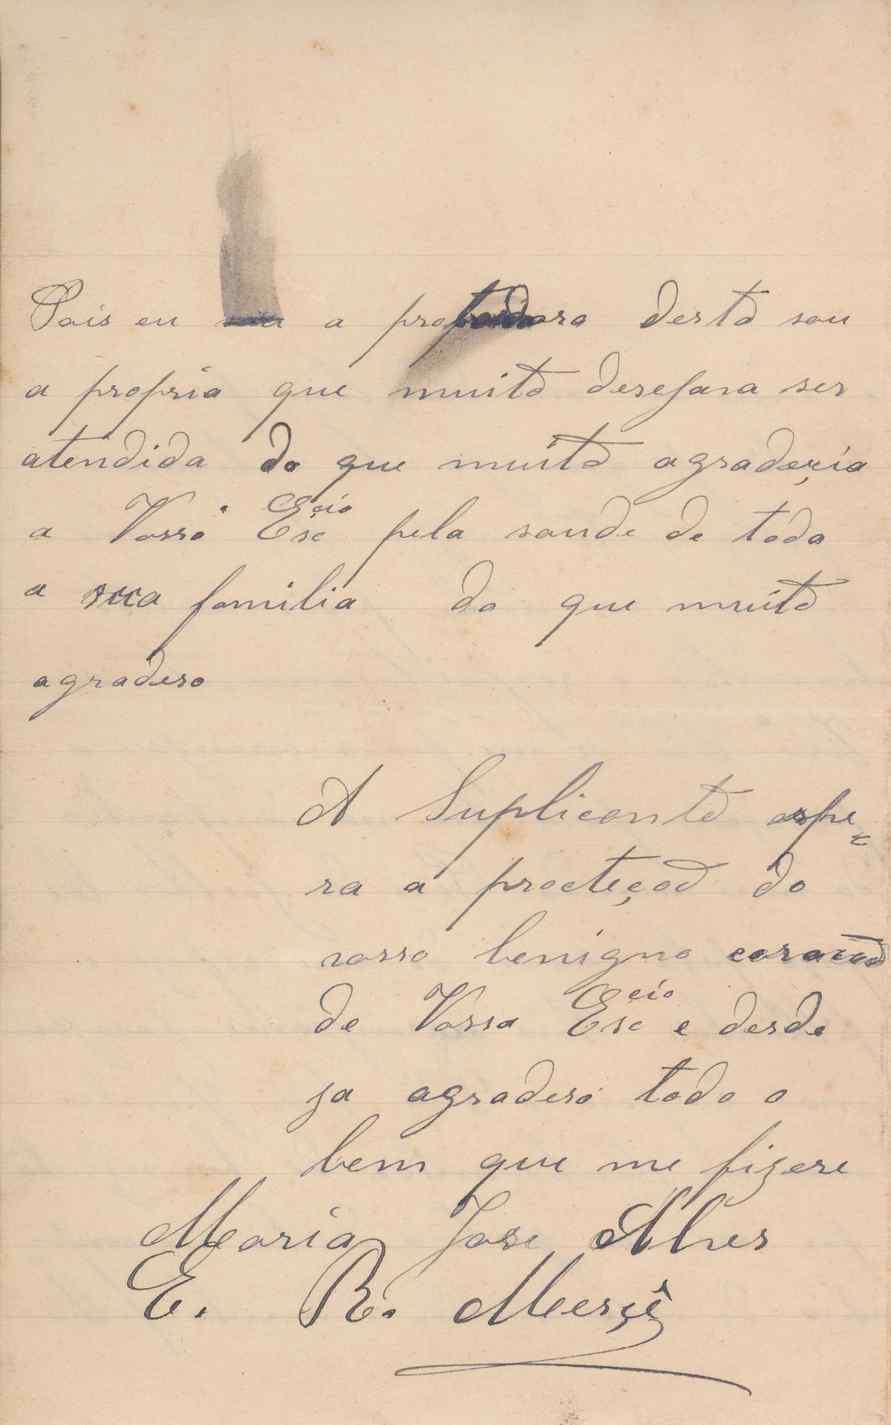 Pois eu a portadora desta sou
a propria que muito desejara ser
atendida do que muito agradeçia
a Vossa Esc eio pela saude de toda
a sua familia do que muito
agradeso
A Suplicente espe=
ra a procteçaõ do
vosso benigno coraçaõ
de Vossa Esc eio e desde
ja agradeso todo o
bem que me fizere
Maria Jose Alves
E. R. Merçê